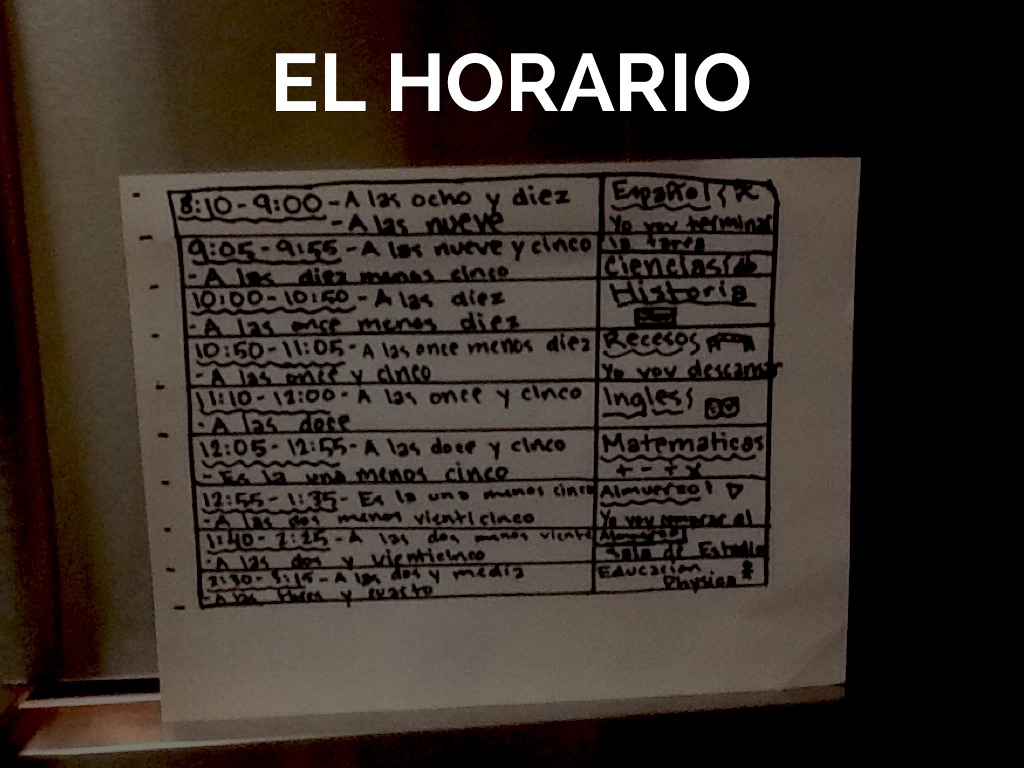 EL HORARIO
8:10-9:00-A las ocho y diez
-A las nueve
Español
Yo voy terminar
la tarea
9:05-9:55-A las nueve y cinco
-A las diez menos cinco
Ciencias
10:00-10:50-A las diez
-A las once menos diez
Historia
10:50-11:05-A las once menos diez
-A las once y cinco
Recesos
Yo voy descansar
11:10-12:00-A las once y cinco
-A las doce
Ingles
12:05-12:55-A las doce y cinco
-Es la una menos cinco
Matematicas
+ - ÷ x
12:55-1:35-Es la una menos cinco
-A las dos menos vienticinco
Almuerzo
Yo voy comprar el
Almuerzo
1:40-2:25-A las dos menos viente
-A las dos y vienticinco
Sala de Estudio
2:30-3:15-A las dos y media
-A las tres y cuarto
Educacion
Physica